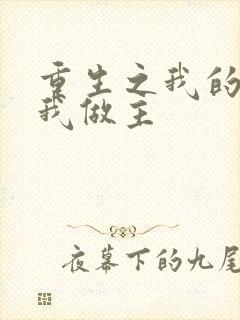 重生之我的
我做主
夜幕下的九尾